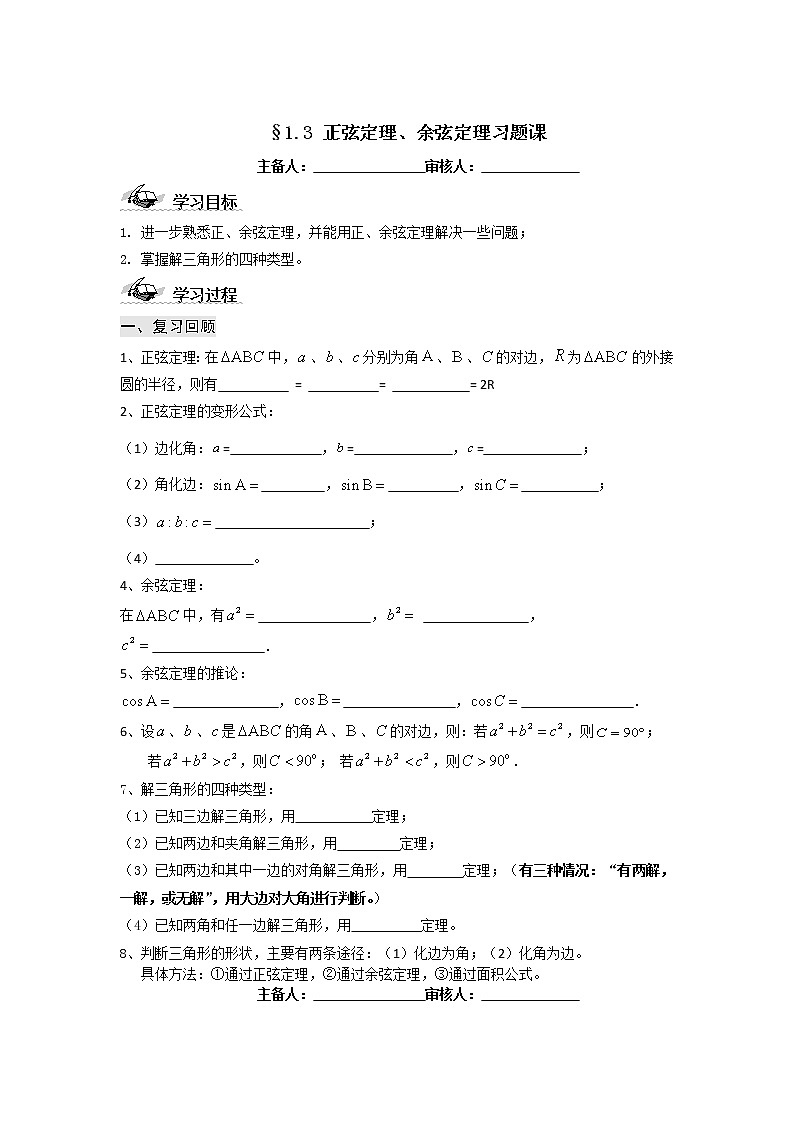 §1.3 正弦定理、余弦定理习题课
主备人：________________审核人：______________
学习目标
1. 进一步熟悉正、余弦定理，并能用正、余弦定理解决一些问题；
2. 掌握解三角形的四种类型。
学习过程
一、复习回顾
1、正弦定理：在ΔABC中，a、b、c分别为角A、B、C的对边，R为ΔABC的外接
圆的半径，则有__________ = __________= ___________= 2R
2、正弦定理的变形公式：
（1）边化角：a =_____________，b =______________，c =______________；
（2）角化边：sin A = _________，sin B = __________，sin C = ___________；
（3）a : b : c = ______________________；
（4）______________。
4、余弦定理：
在ΔABC中，有a² = ________________，b² = _______________，
c² = ________________.
5、余弦定理的推论：
cos A = _______________，cos B = ________________，cos C = ________________.
6、设a、b、c是ΔABC的角A、B、C的对边，则：若a² + b² = c²，则C = 90°；
若a² + b² > c²，则C < 90°； 若a² + b² < c²，则C > 90°.
7、解三角形的四种类型：
（1）已知三边解三角形，用___________定理；
（2）已知两边和夹角解三角形，用_________定理；
（3）已知两边和其中一边的对角解三角形，用________定理；（有三种情况：“有两解，
一解，或无解”，用大边对大角进行判断。）
（4）已知两角和任一边解三角形，用__________定理。
8、判断三角形的形状，主要有两条途径：（1）化边为角；（2）化角为边。
具体方法：①通过正弦定理，②通过余弦定理，③通过面积公式。
主备人：________________审核人：______________